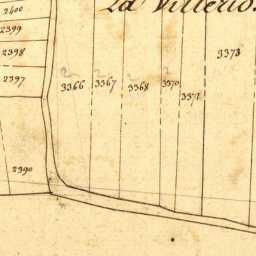 2400
2399
2398
2397
2390
3366
3367
3368
3370
3371
3373